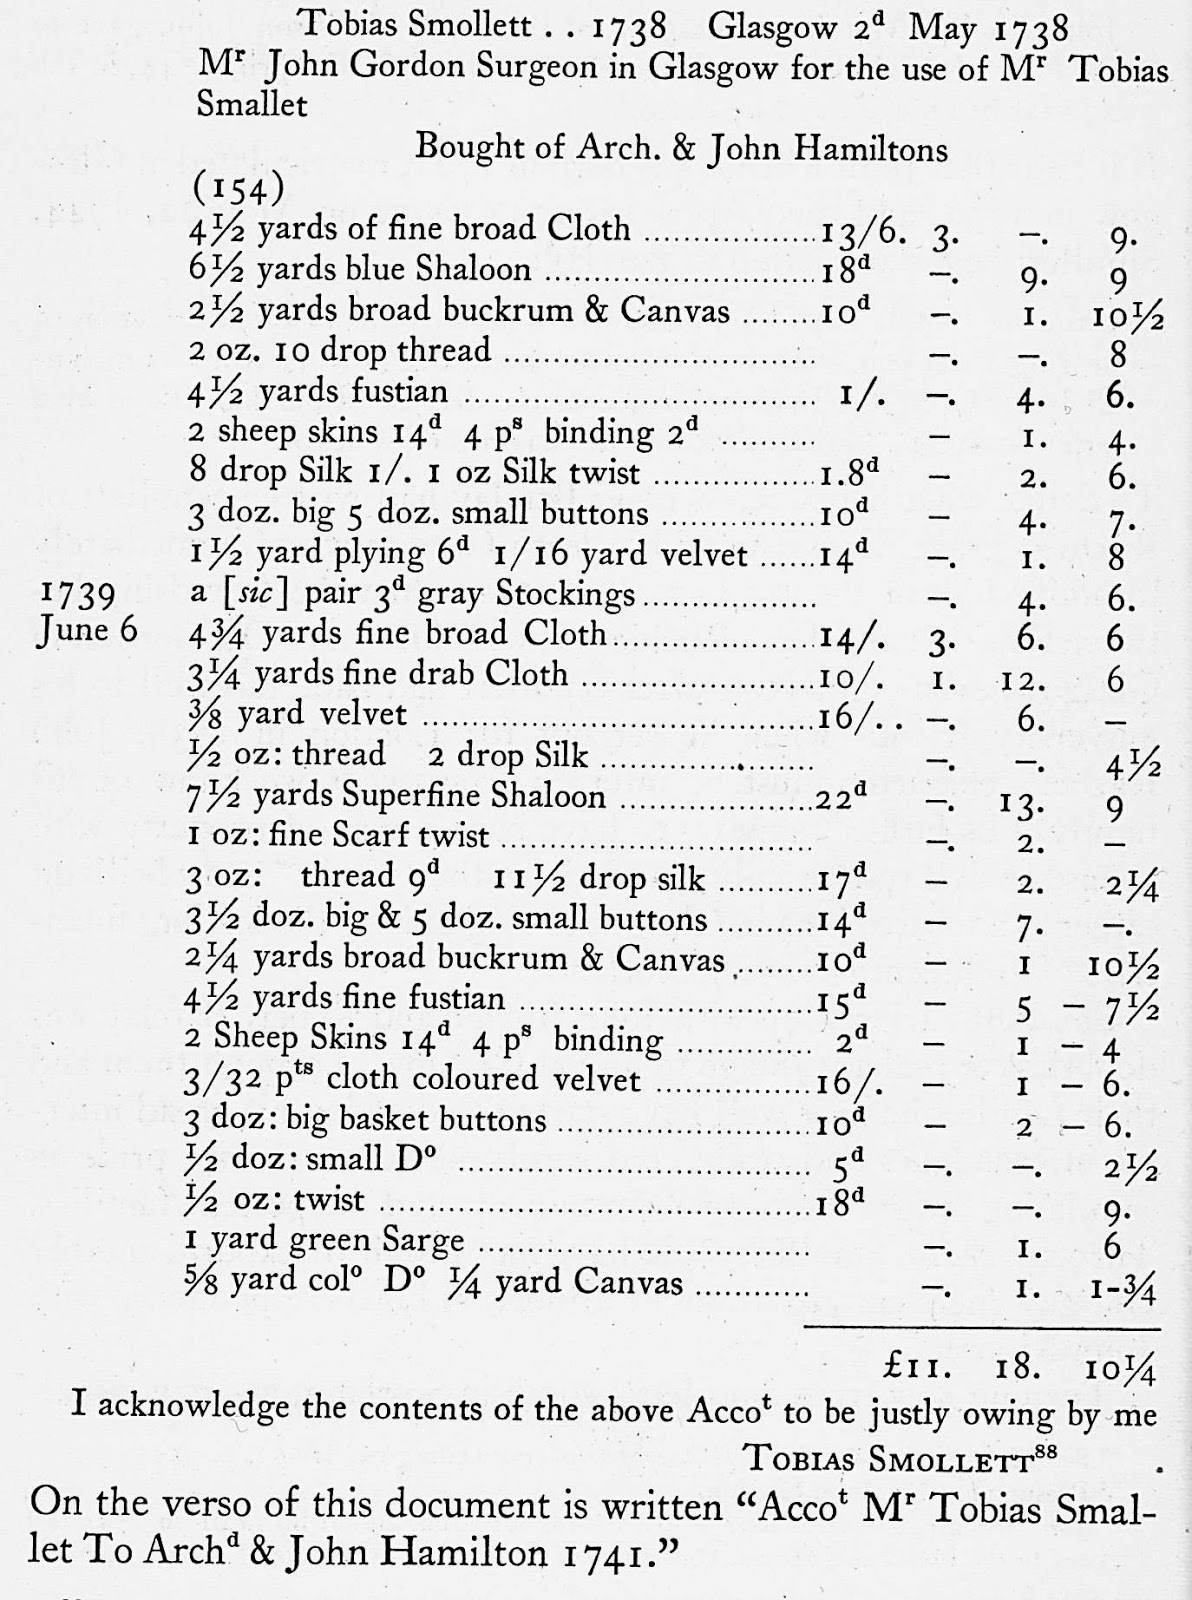 Tobias Smollett . . 1738 Glasgow 2d May 1738
Mr John Gordon Surgeon in Glasgow for the use of Mr Tobias
Smallet
Bought of Arch. & John Hamiltons
(154)
4½ yards of fine broad Cloth .................. 13/6. 3. –. 9.
6½ yards blue Shaloon ............................ 18d –. 9. 9
2½ yards broad buckrum & Canvas ........ 10d –. 1. 10½
2 oz. 10 drop thread ................................ –. –. 8
4½ yards fustian .................................... 1/. –. 4. 6.
2 sheep skins 14d 4 ps binding 2d .......... – 1. 4.
8 drop Silk 1/. 1 oz Silk twist ................. 1.8d – 2. 6.
3 doz. big 5 doz. small buttons ................ 10d – 4. 7.
1½ yard plying 6d 1/16 yard velvet ...... 14d –. 1. 8
1739 a [sic] pair 3d gray Stockings .................. –. 4. 6.
June 6 4¾ yards fine broad Cloth ..................... 14/. 3. 6. 6
3¼ yards fine drab Cloth ........................ 10/. 1. 12. 6
⅜ yard velvet ........................................ 16/. . –. 6. –
½ oz: thread 2 drop Silk ...................... –. –. 4½
7½ yards Superfine Shaloon .................... 22d –. 13. 9
1 oz: fine Scarf twist ................................ –. 2. –
3 oz: thread 9d 11½ drop silk .......... 17d – 2. 2¼
3½ doz. big & 5 doz. small buttons .......... 14d – 7. –.
2¼ yards broad buckrum & Canvas ......... 10d – 1 10½
4½ yards fine fustian .............................. 15d – 5 – 7½
2 Sheep Skins 14d 4 ps binding .............. 2d – 1 – 4
3/32 pts cloth coloured velvet ................ 16/. – 1 – 6.
3 doz: big basket buttons .......................... 10d – 2 – 6.
½ doz: small Do .................................... 5d –. –. 2½
½ oz: twist ............................................ 18d –. –. 9.
1 yard green Sarge .................................. –. 1. 6
⅝ yard colo Do ¼ yard Canvas ............ –. 1. 1-¾
£11. 18. 10¼
I acknowledge the contents of the above Accot to be justly owing by me
TOBIAS SMOLLETT88
On the verso of this document is written “Accot Mr Tobias Smal-
let To Archd & John Hamilton 1741.”